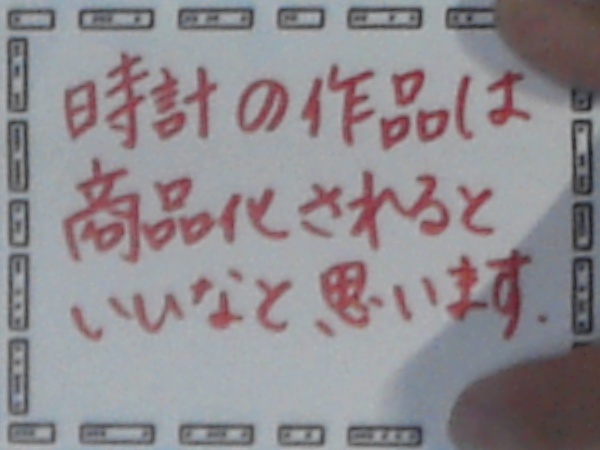 時計の作品は
商品化されると
いいなと、思います.